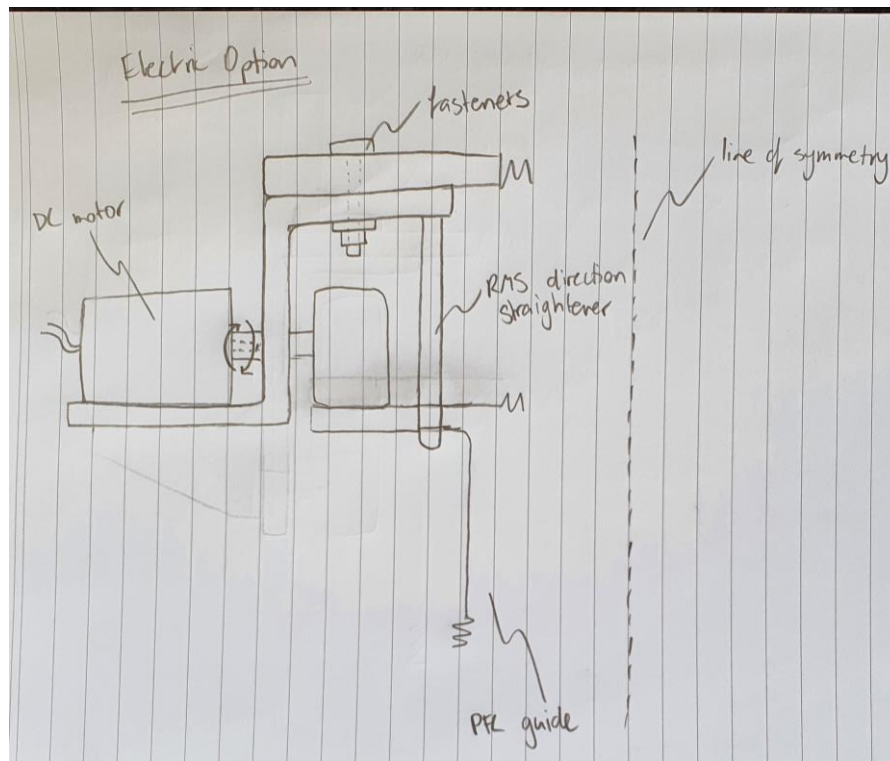 Electric Option
fasteners
line of symmetry
DC motor
RMS direction
straightener
PFL guide